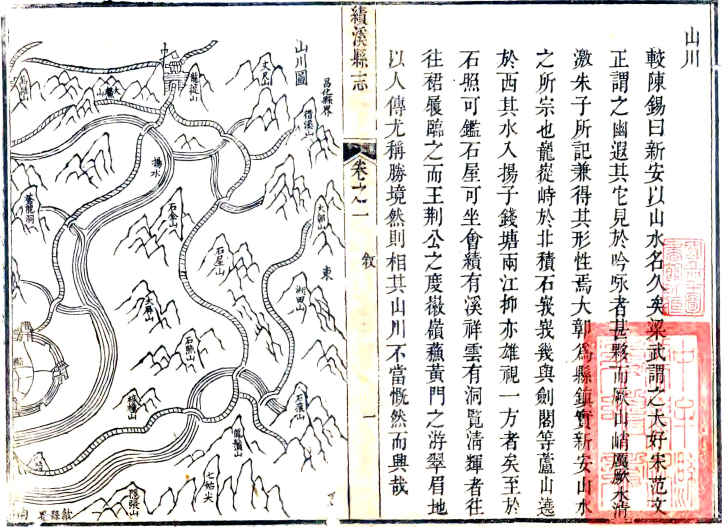 山川
較陳錫曰新安以山水名久矣梁武謂之大好宋范文
正謂之幽遐其它見於吟咏者甚夥而厥山峭厲厥水清
激朱子所記兼得其形性焉大鄣為縣鎮實新安山水
之所宗也龍㟳峙於北積石峩峩幾與劍閣等蘆山遶
於西其水入揚子錢塘兩江抑亦雄視一方者矣至於
石照可鑑石屋可坐會績有溪祥雲有洞覧清輝者往
往裙屐臨之而王荆公之度徽嶺蘓黄門之游翠眉地
以人傳尤稱勝境然則相其山川不當慨然而興哉
績溪縣志
卷之一
敘
一
山川圖
昌化縣界
丈尺山
龍㟳山
大獒山
揚水
借溪山
大鄣山
東
石金山
石屋山
湖田山
蒼龍洞
大屏山
石照山
石張山
龍鬚山
七姑尖
隱張山
歙縣界
南